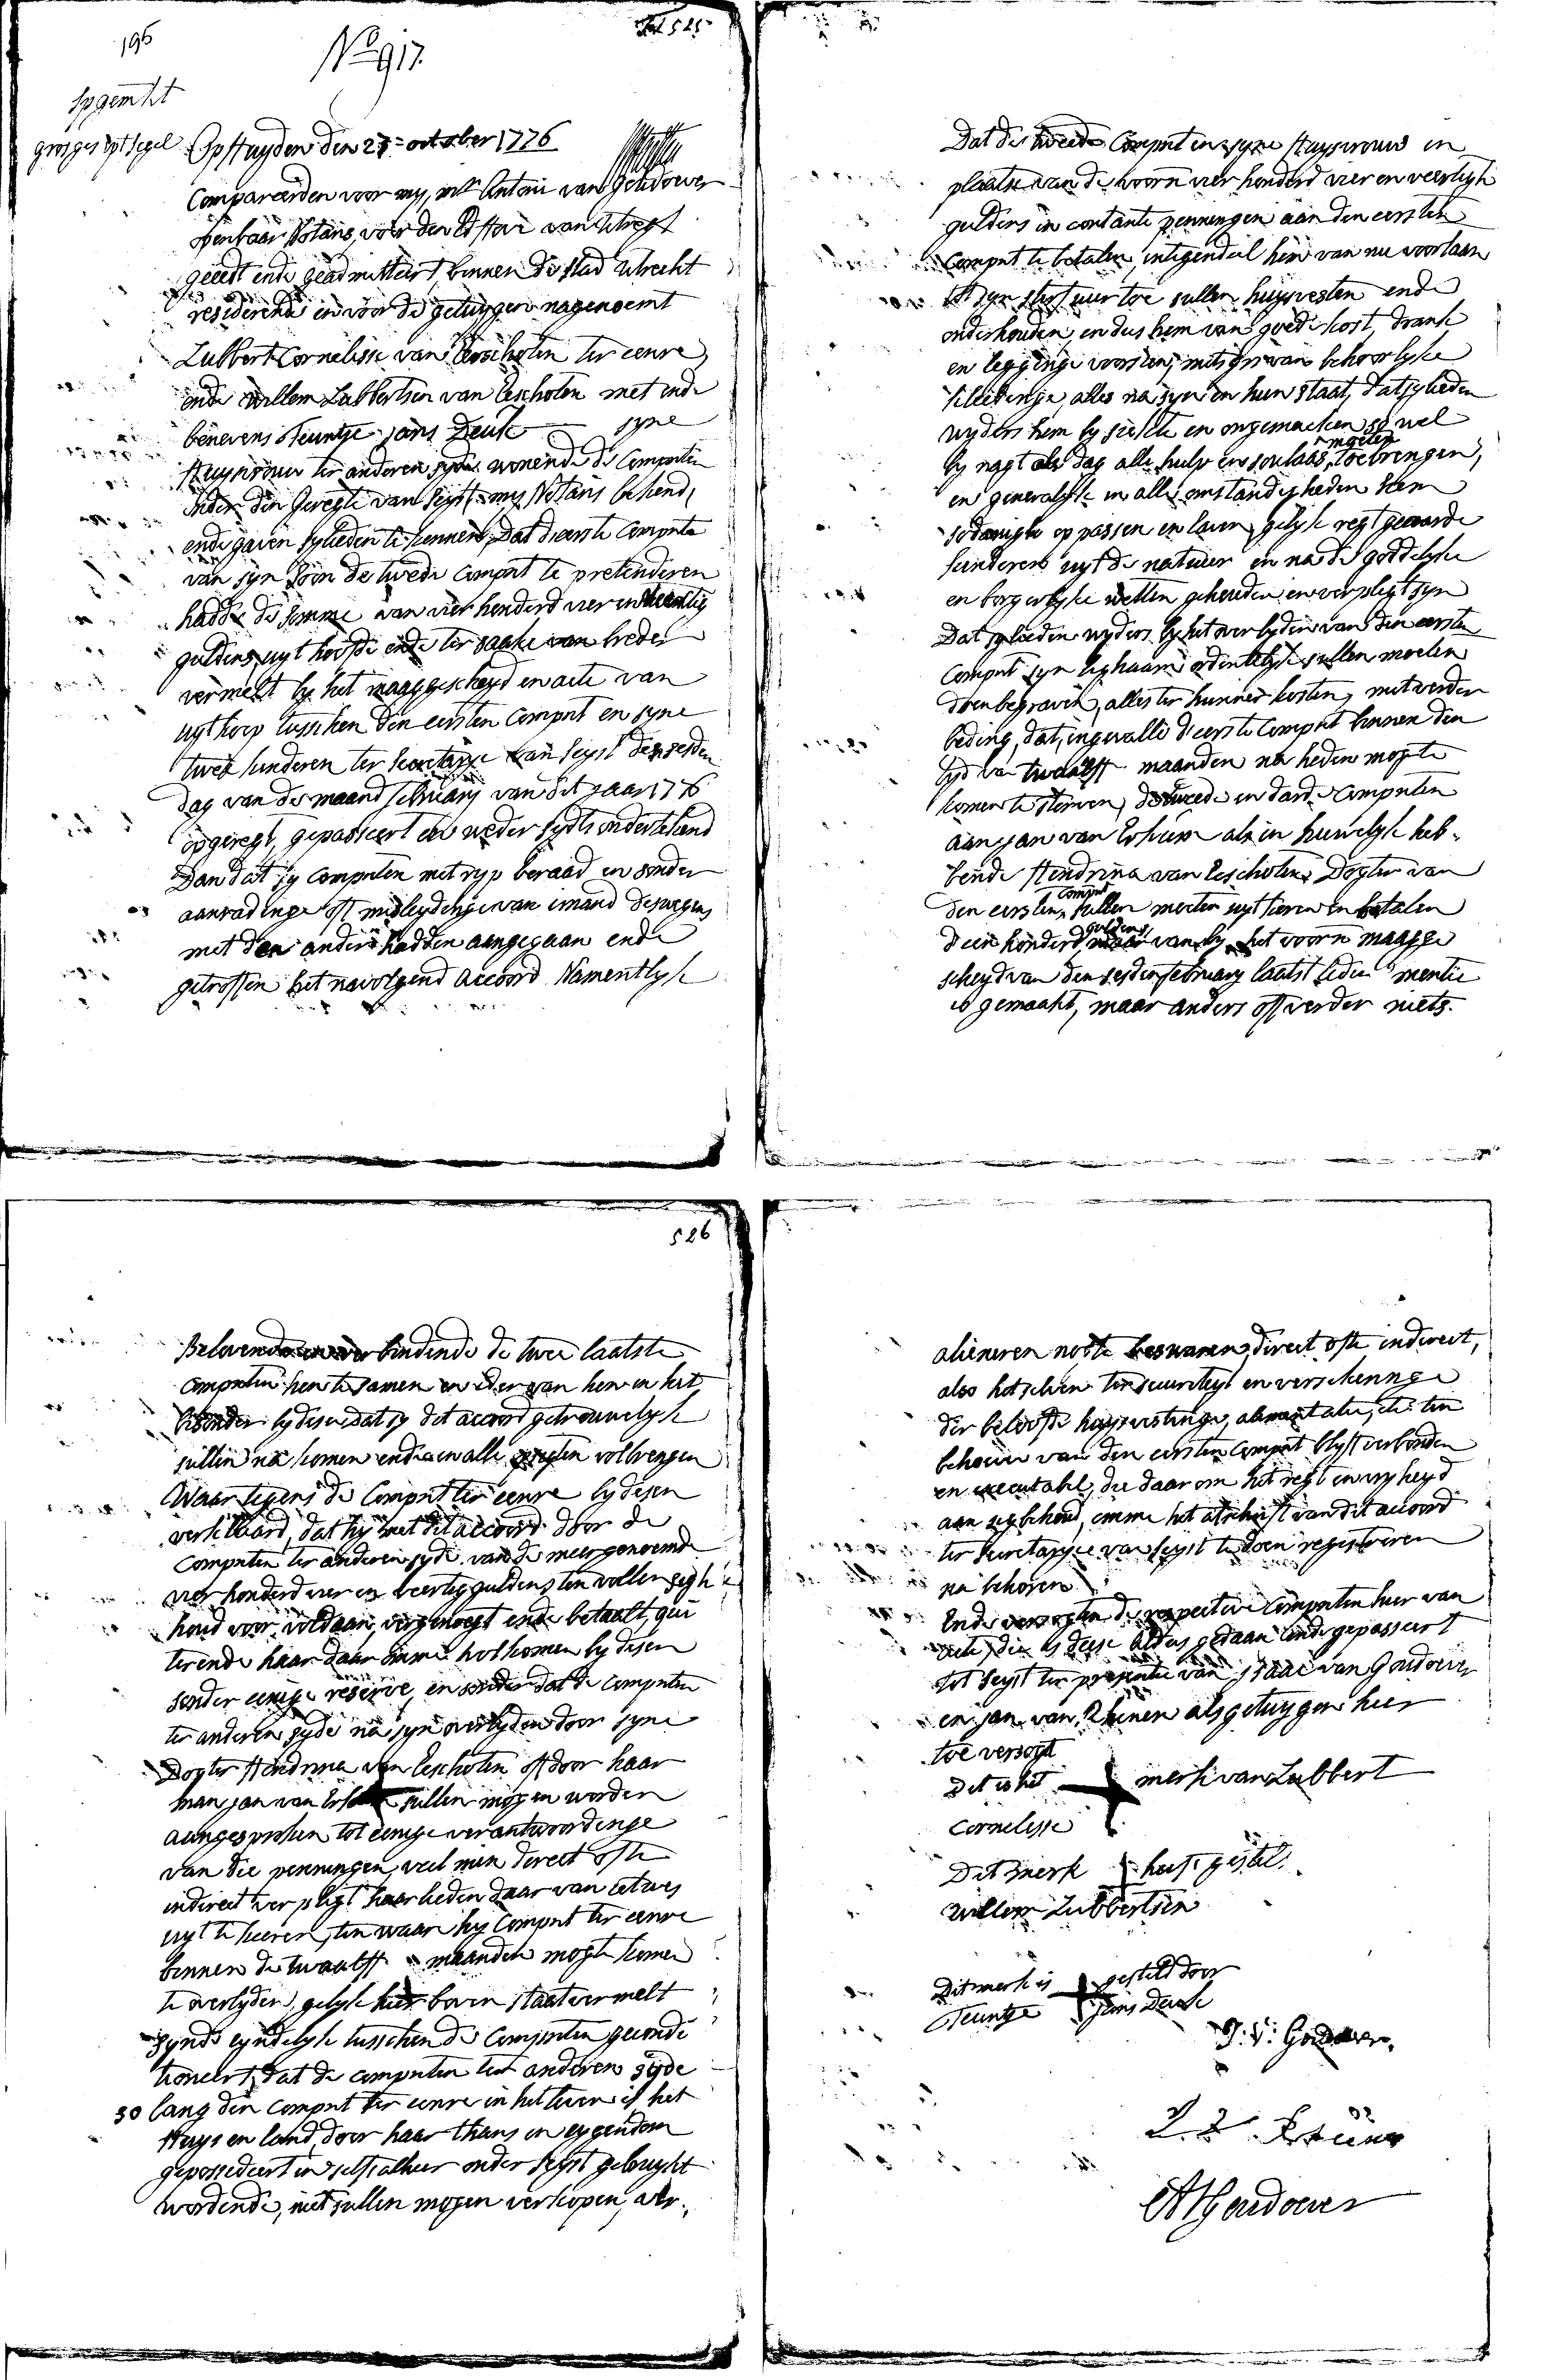 196
Nº 917.
Fol 525.
Opgemkt
grosges opt segel
Op Huyden den 27=october 1776
Compareerden voor my, mr Antoni van Goudoever
openbaar Notaris, voor den Ed Hove van Utregt
geëedt ende geadmitteert, binnen de stad Utrecht
residerende en voor de getuygen nagenoemt
Lubbert Cornelisse van Eescholen ter eenre,
ende Willem Lubbertsen van Eescholen met ende
benevens Teuntje jans Deuk syne
Huysvrouw ter anderen syde wonende de Compnten
onder den Geregte van Seyst my Notaris bekend,
ende gaven sylieden te kennen, Dat d'eerste Compnte
van syn Soon de twede Compnt te pretenderen
hadde de somme van vier honderd vier en veertig
guldens uyt hoofde ende ter saake van breder
vermelt by het maaggescheyd en acte van
uytkoop tusschen den eersten Compnt en syne
twee kinderen ter secretarye van Seyst den sesden
dag van de maand february van dit jaar 1776
opgeregt, gepasseert en weder syds ondertekend
Dan dat sy Compnten met ryp beraad en sonder
aanradinge oft misleydinge van imand desweegens
met den anderen hadden aengegaan ende
getroffen het navolgend accoord Namentlyk
Dat de tweede Compnt en syne Huysvrouw in
plaatse van de voorn vier honderd vier en veertigh
guldens in contante penningen aan den eersten
Compnt te betalen, integendeel hem van nu voortaan
tot syn sterfuur toe sullen huysvesten ende
onderhouden, en dus hem van goede kost, drank
en legginge voorsien, mitsgrs van behoorlyke
kledinge, alles na syn en hun staat, dat sylieden
wyders hem by siekte en ongemacken so wel
by nagt als dag alle hulp en soulaas moeten toebrengen,
en generalyk in alle omstandigheden hem
sodanigh oppassen en laven gelyk regtgeaarde
kinderen uyt de natuur en na de goddelyke
en borgerlyke wetten gehouden en verpligt syn
Dat sylieden wyders by het overlyden van den eersten
Compnt syn lighaam ordentelyk sullen moeten
doen begraven, alles ter hunner kosten, met verder
beding, dat, ingevalle d'eerste Compnt binnen den
tyd van twaalff maanden na heden mogte
komen te sterven, de tweede en darde Compnten
aan jan van Ershuen als in huwelyk heb=
bende Hendrina van Eescholen Dogter van
den eersten Compnt sullen moeten uytkeren en betalen
d'een honderd guldens waar van by het voorn maagge
scheyd van den sesden february laatst leden mentie
is gemaakt, maar anders off verder niets.
526
Belovende en verbindende de twee laatste
Compnten hen te samen en ider van hen in het
bisonder by desen dat sy dit accoord getrouwelyk
sullen na komen ende in alle opsigten volbrengen
Waar tegens de Compnt ter eenre by desen
verklaard, dat hy met dit accoord door de
Compnten ter anderen syde van de meergenoemde
vier honderd vier en veertig guldens ten vollen sigh
houd voor voldaan, vergenoegt ende betaalt, qui
terende haar daar omme volkomen by desen
sonder eenige reserve, en sonder dat de Compnten
ter anderen syde na syn overlyden door syne
Dogter Hendrina van Eescholen off door haar
man jan van Ershuen sullen mogen worden
aangesproken tot eenige verantwoordinge
van die penningen, veel min direct ofte
indirect verpligt haarlieden daar van ietwes
uyt te keeren, ten waar hy Compnt ter eenre
binnen de twaalff maanden mogte komen
te overlyden, gelyk hier boven staat vermelt
Zynde eyndelyk tusschen de Compnten gecondi
tioneert, dat de Compnten ter anderen Zyde
so lang den Compnt ter eenre in het leven is het
Huys en land, door haar thans in eygendom
gepossedeert en selfs alhier onder Seyst gebruykt
wordende, niet sullen mogen verkopen, ver=
alieneren nochte beswaren, direct ofte indirect,
also hetselve ter securiteyt en versekeringe
der beloofde huysvestinge, alimentatie, etc ten
behoeve van den eersten Compnt blyft verbonden
en executabel, die daarom het regt en vryheyd
aan sig behoud, omme het afschrift van dit accoord
ter Secretarye van Seyst te doen registreren
na behoren
Ende versogten de respective Compnten hier van
acte, die is dese Aldus gedaan ende gepasseert
tot Seyst ter presentie van Isaac van Goudoever
en jan van Rhenen als getuygen hier
toe versogt
Dit is het merk van Lubbert
Cornelisse
Dit merk heeft gestelt
Willem Lubbertsen
Dit merk is gesteld door
Teuntje Jans Deuk
J. V. Goudoever.
A V Goudoever